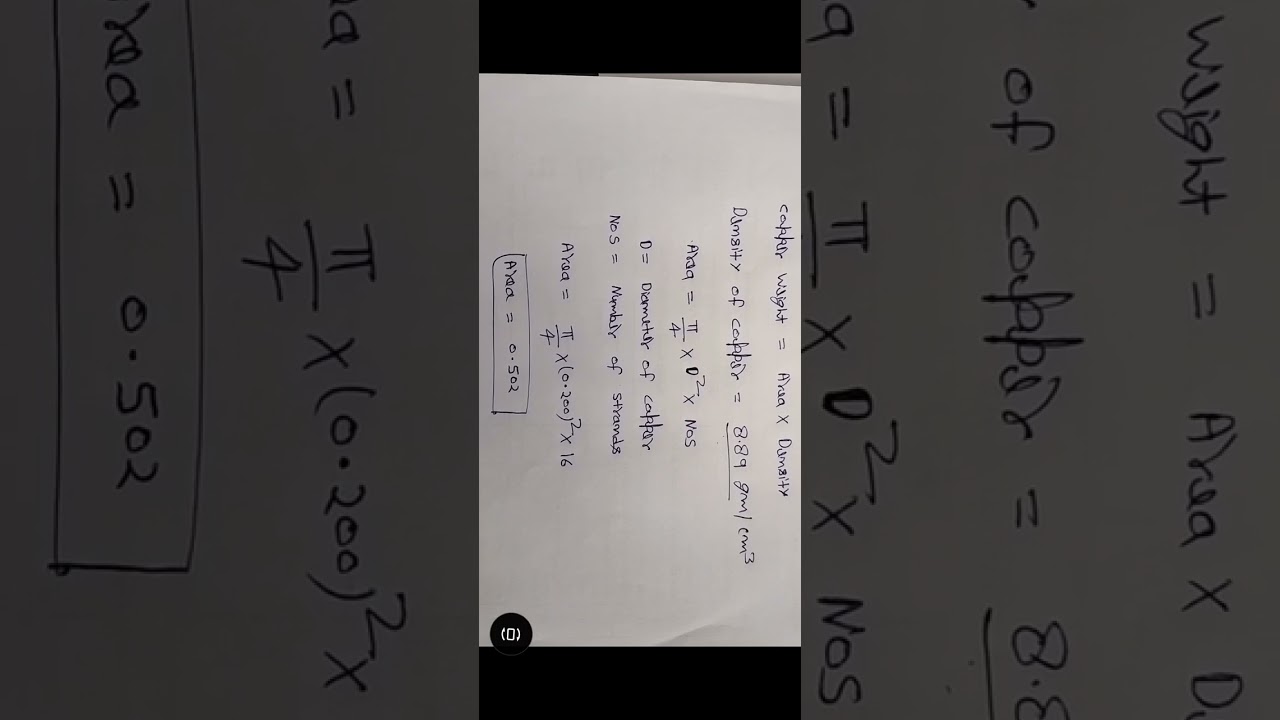 Copper Weight = Area X Density
Density of copper = 8.89 gm/cm³
Area = π/4 X D² X Nos
D = Diameter of copper
Nos = Number of strands
Area = π/4 X (0.200)² X 16
Area = 0.502